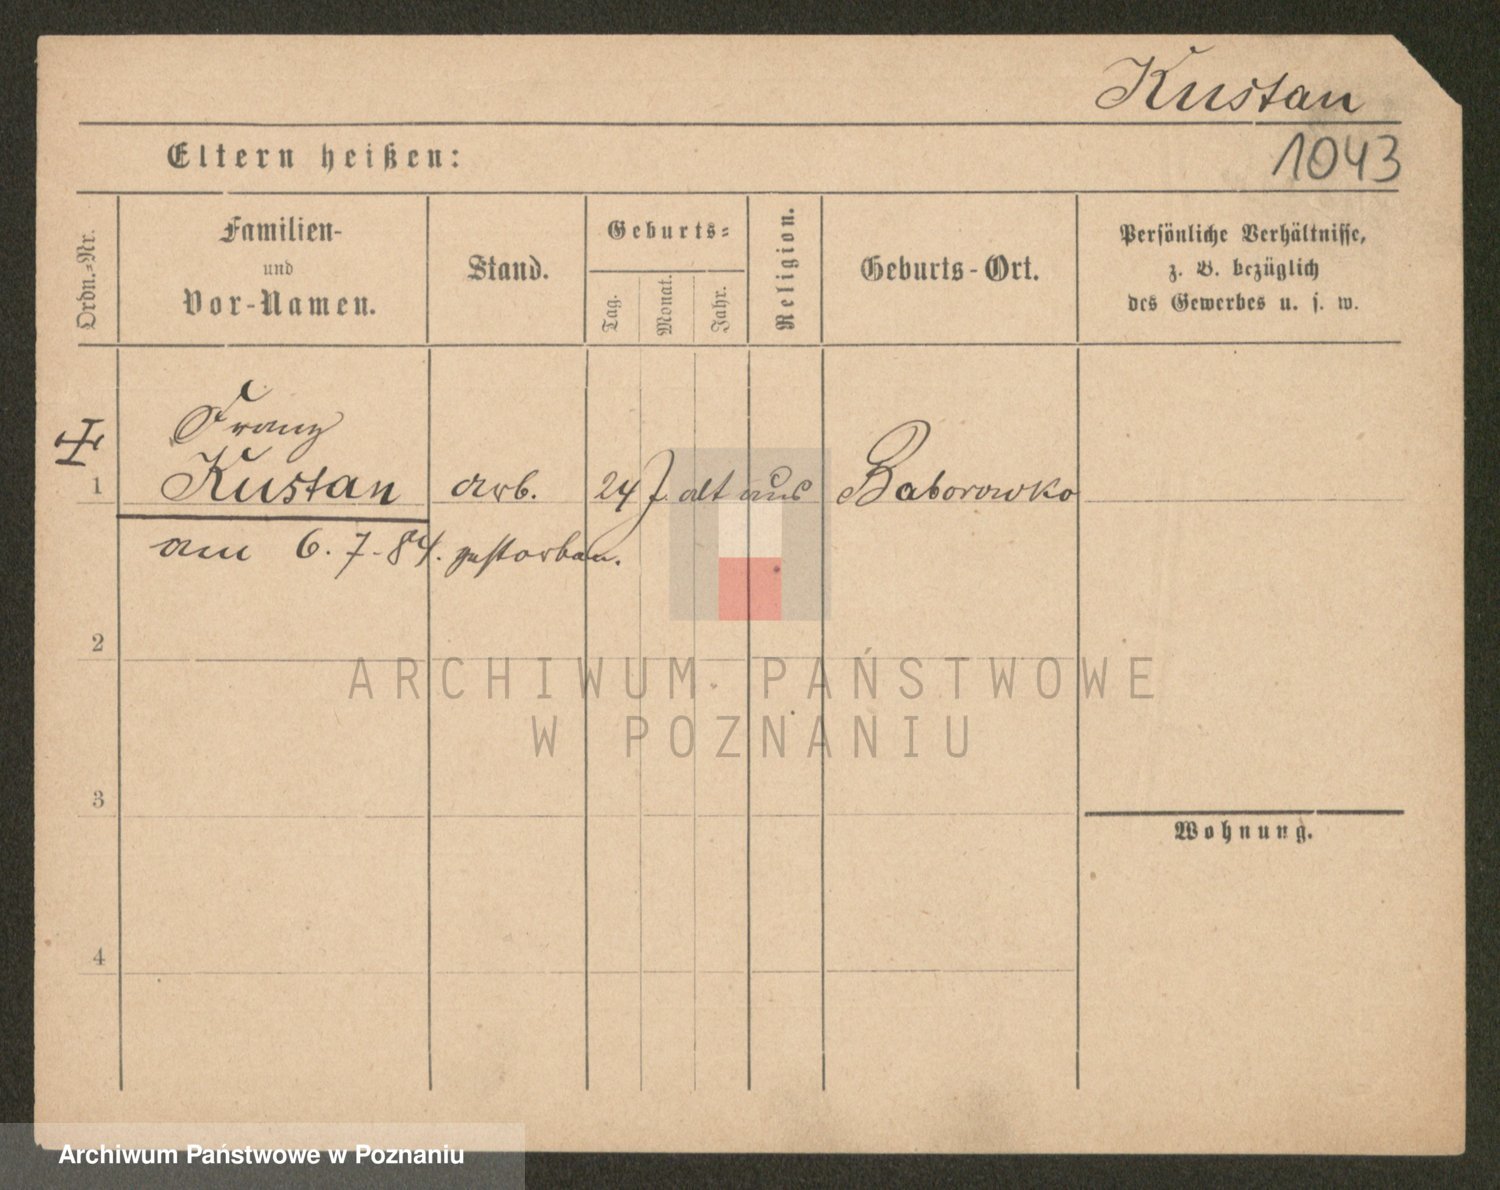 Kustan
Eltern heißen:
1043
Ordn.-Nr.
Familien-
und
Vor-Namen.
Stand.
Geburts-
Tag.
Monat.
Jahr.
Religion.
Geburts-Ort.
Persönliche Verhältnisse,
z. B. bezüglich
des Gewerbes u. s. w.
Franz
1 Kustan arb. 24 J. alt aus Baborowko
am 6.7.84. gestorben.
2
ARCHIWUM PAŃSTWOWE
W POZNANIU
3
Wohnung.
4
Archiwum Państwowe w Poznaniu